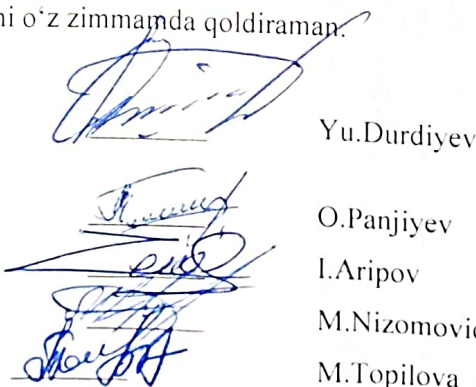 ni o‘z zimmamda qoldiraman.
Yu.Durdiyev
O.Panjiyev
I.Aripov
M.Nizomovic
M.Topilova